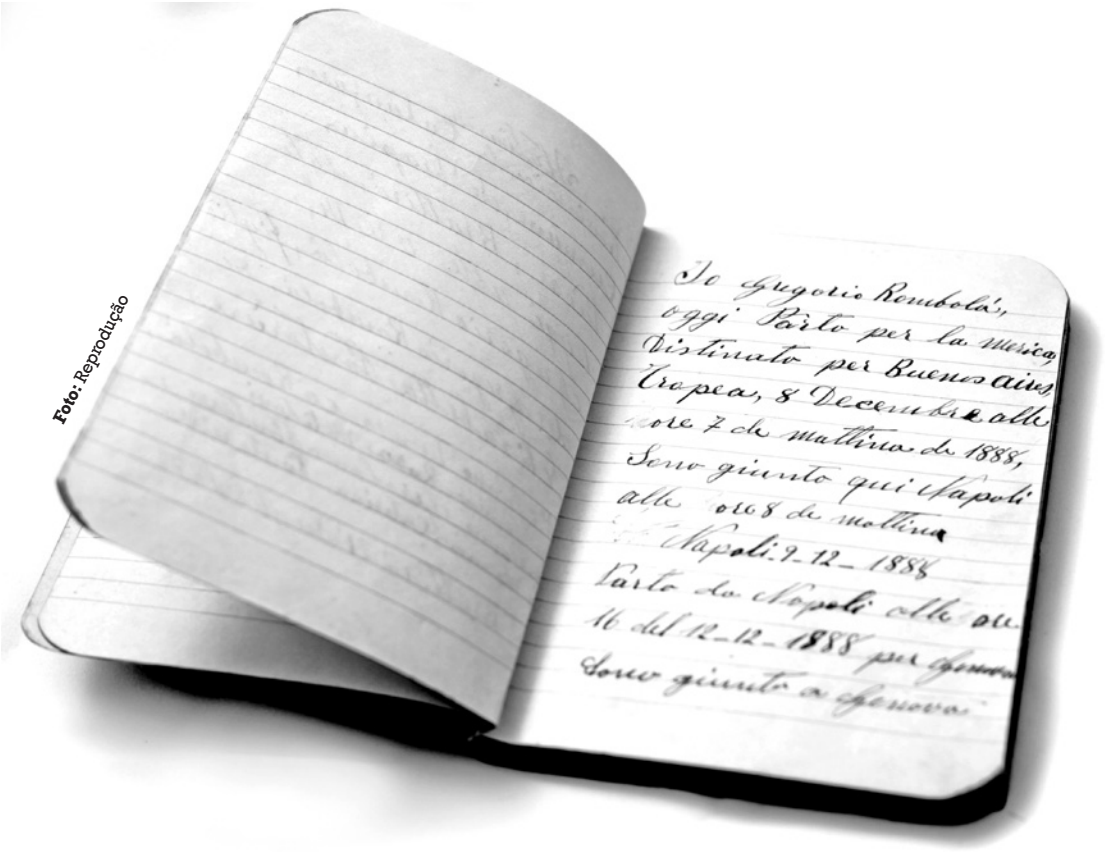 Foto: Reprodução
Io Gregorio Rombolá,
oggi Parto per la merica,
Distinato per Buenos aires,
Tropea, 8 Decembre alle
ore 7 de mattina de 1888,
Sono giunto qui Napoli
alle ore 8 de mattina
Napoli-9-12-1888
Parto da Napoli alle ore
16 del 12-12-1888 per Genova
Sono giunto a Genova